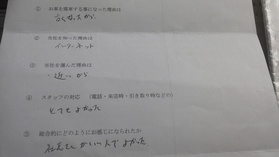 ① お車を廃車する事になった理由は
古くなったから
② 当社を知った理由は
インターネット
③ 当社を選んだ理由は
近いから
④ スタッフの対応 (電話・来店時・引き取り時など)
とてもよかった
⑤ 総合的にどのようにお感じになられたか
社長さんがいい人でよかった